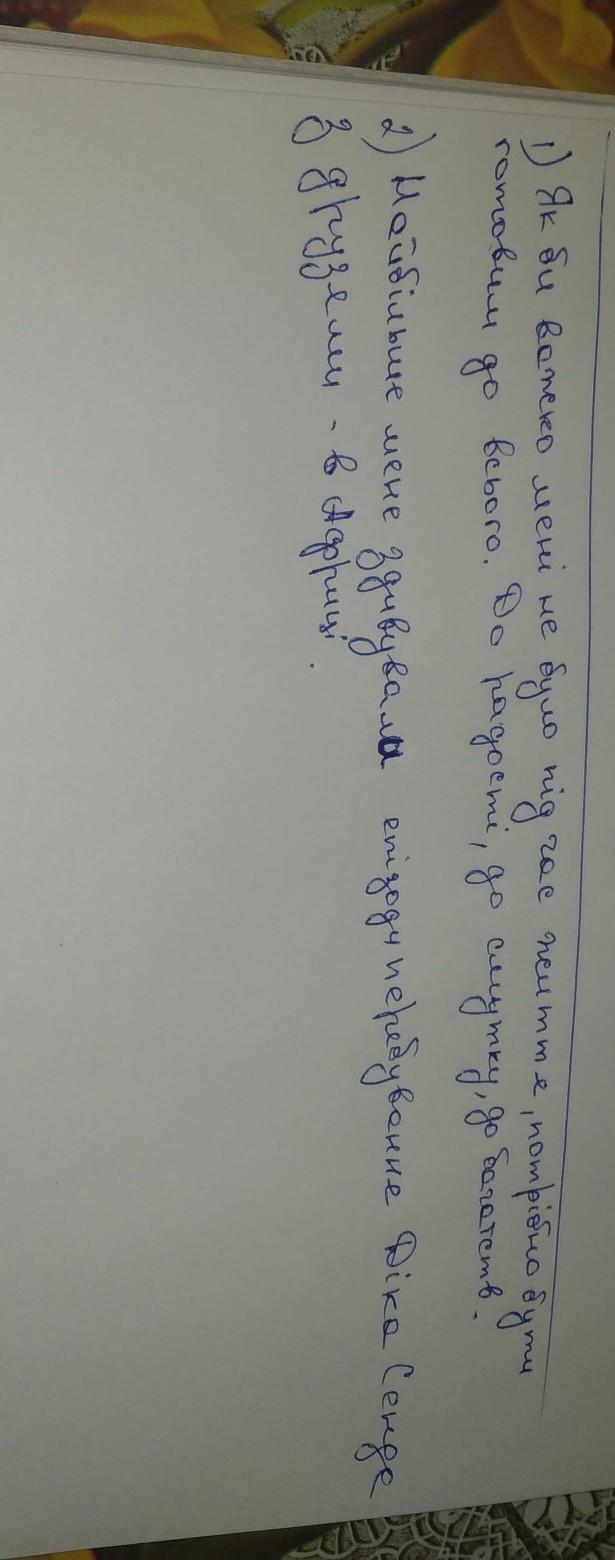 1) Як би важко мені не було під час життя, потрібно бути
готовим до всього. До радості, до смутку, до багатств.
2) Найбільше мене здивували епізоди перебування Діка Сенда
з друзями - в Африці.